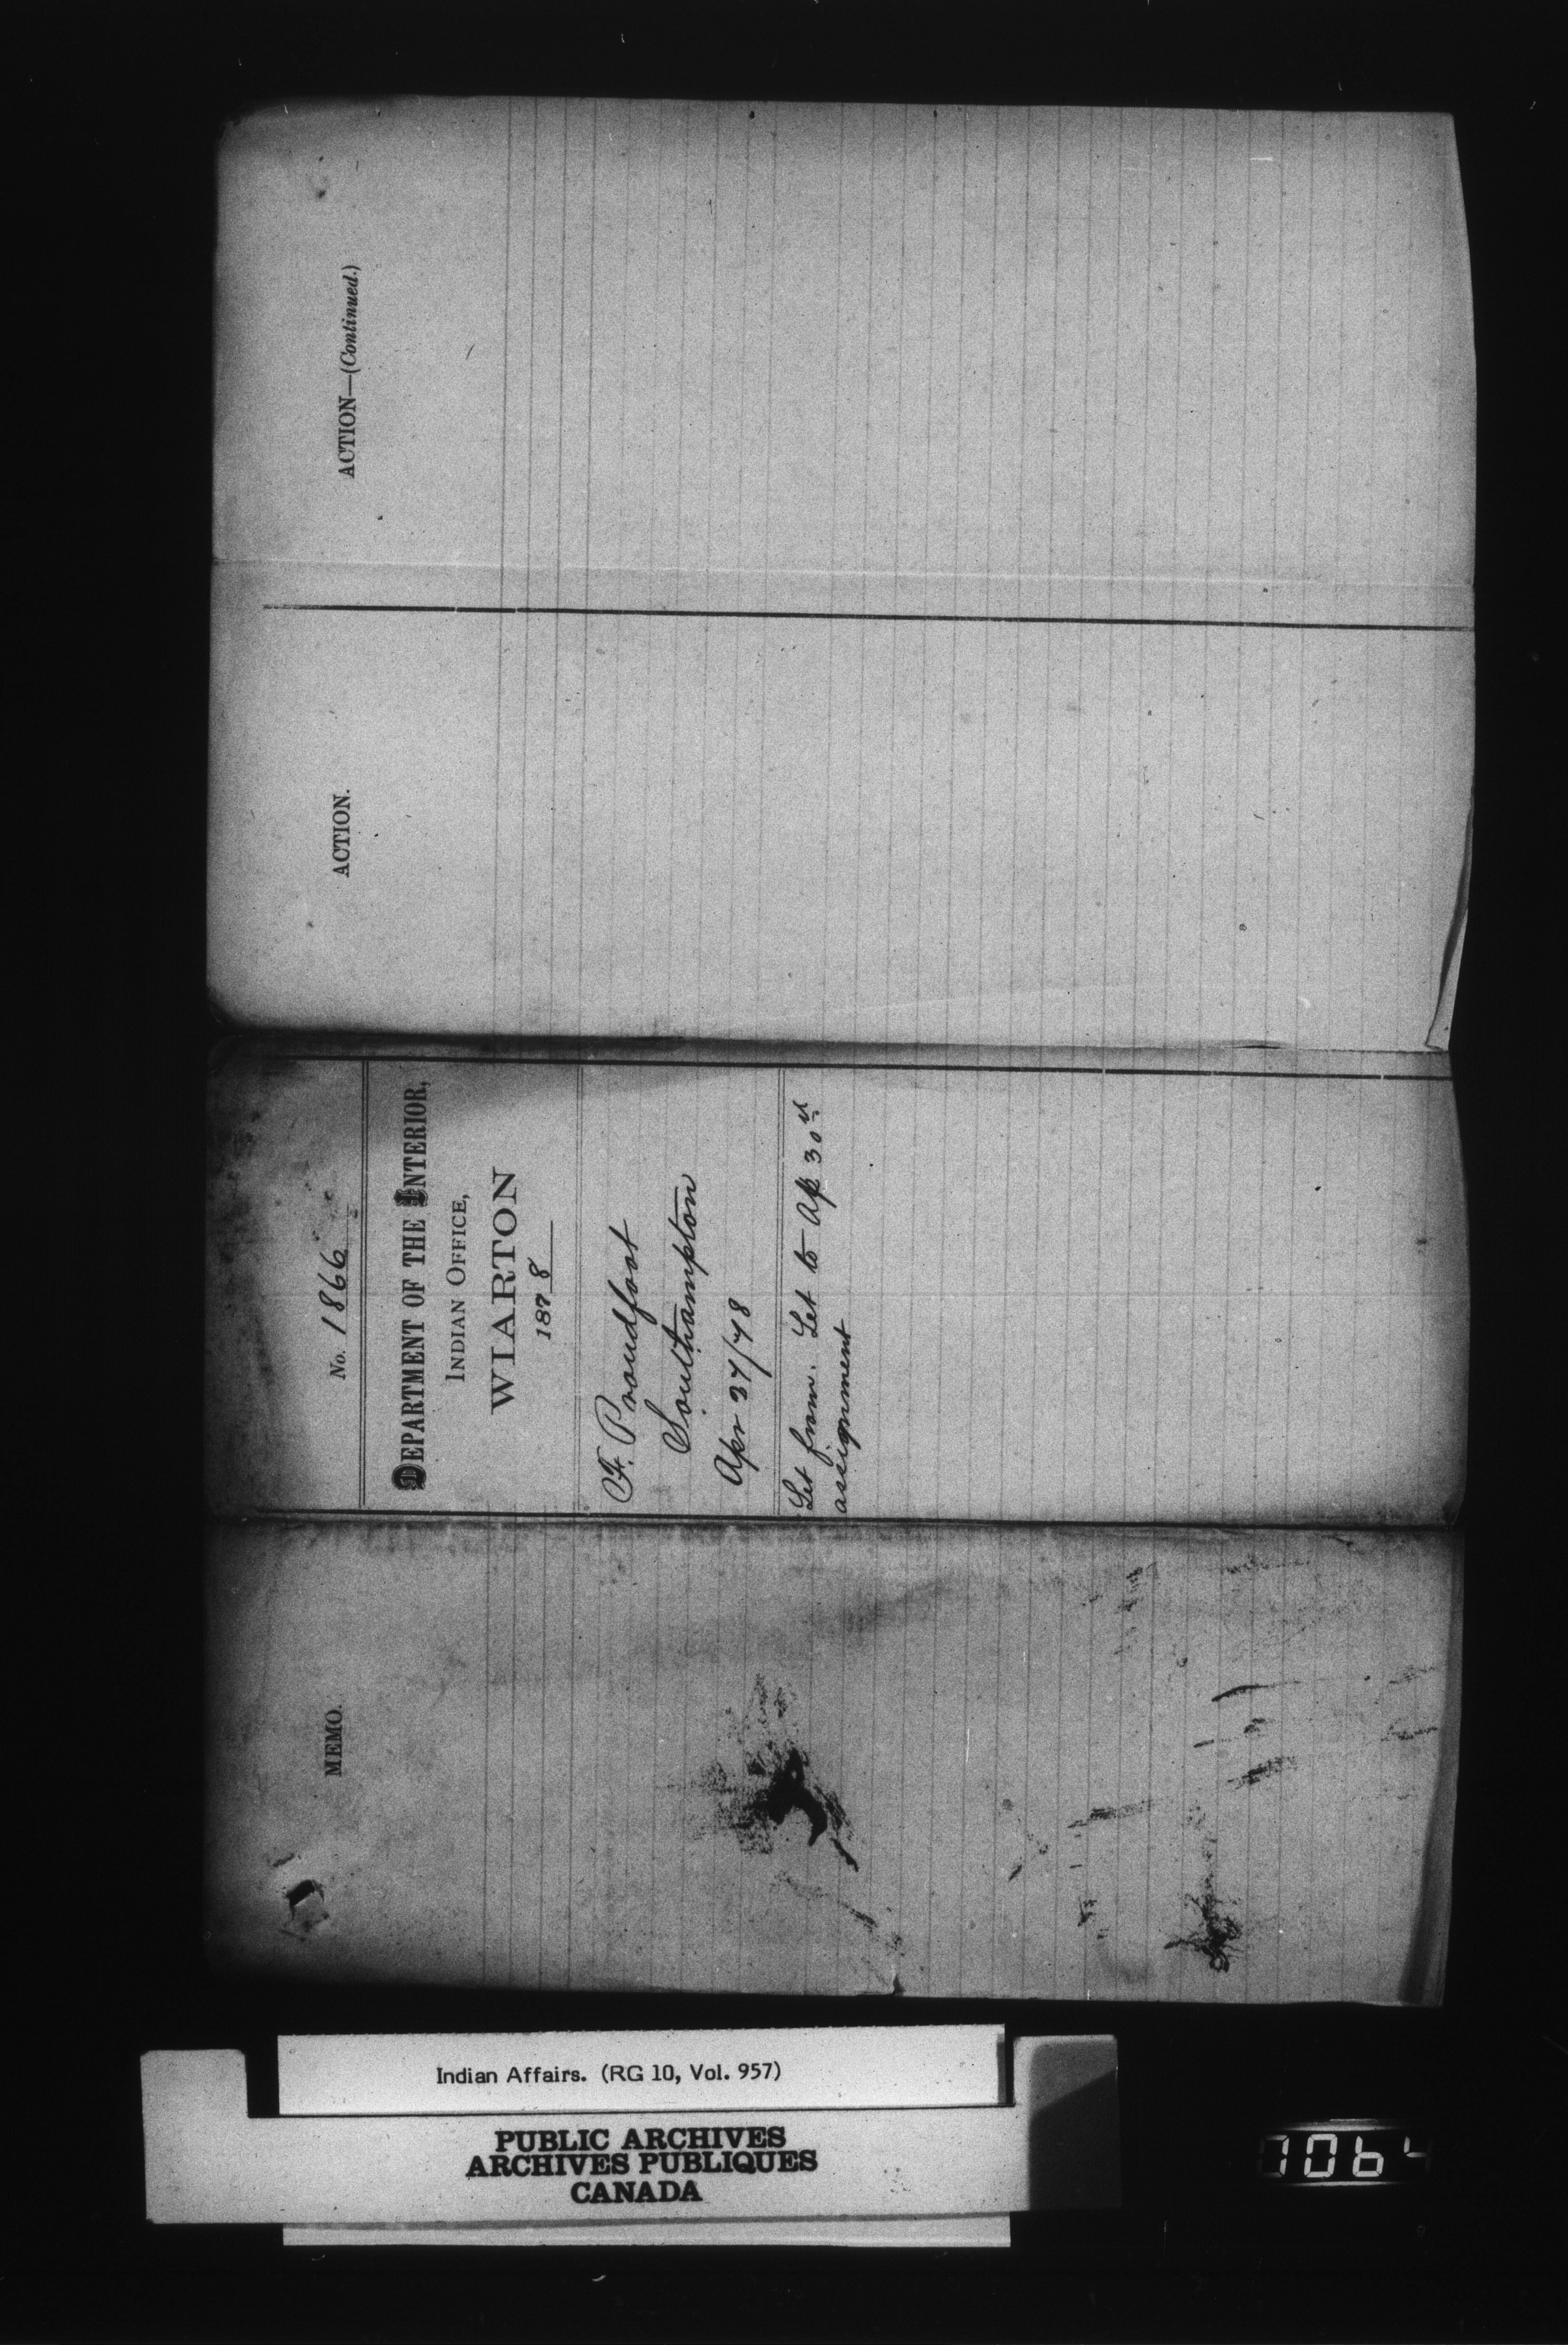 MEMO.
No. 1866
DEPARTMENT OF THE INTERIOR,
INDIAN OFFICE,
WIARTON
1878
F. Proudfoot
Southampton
Apr 27/78
Let from. Let to Ap 30th
assignment
ACTION.
ACTION—(Continued.)
Indian Affairs. (RG 10, Vol. 957)
PUBLIC ARCHIVES
ARCHIVES PUBLIQUES
CANADA